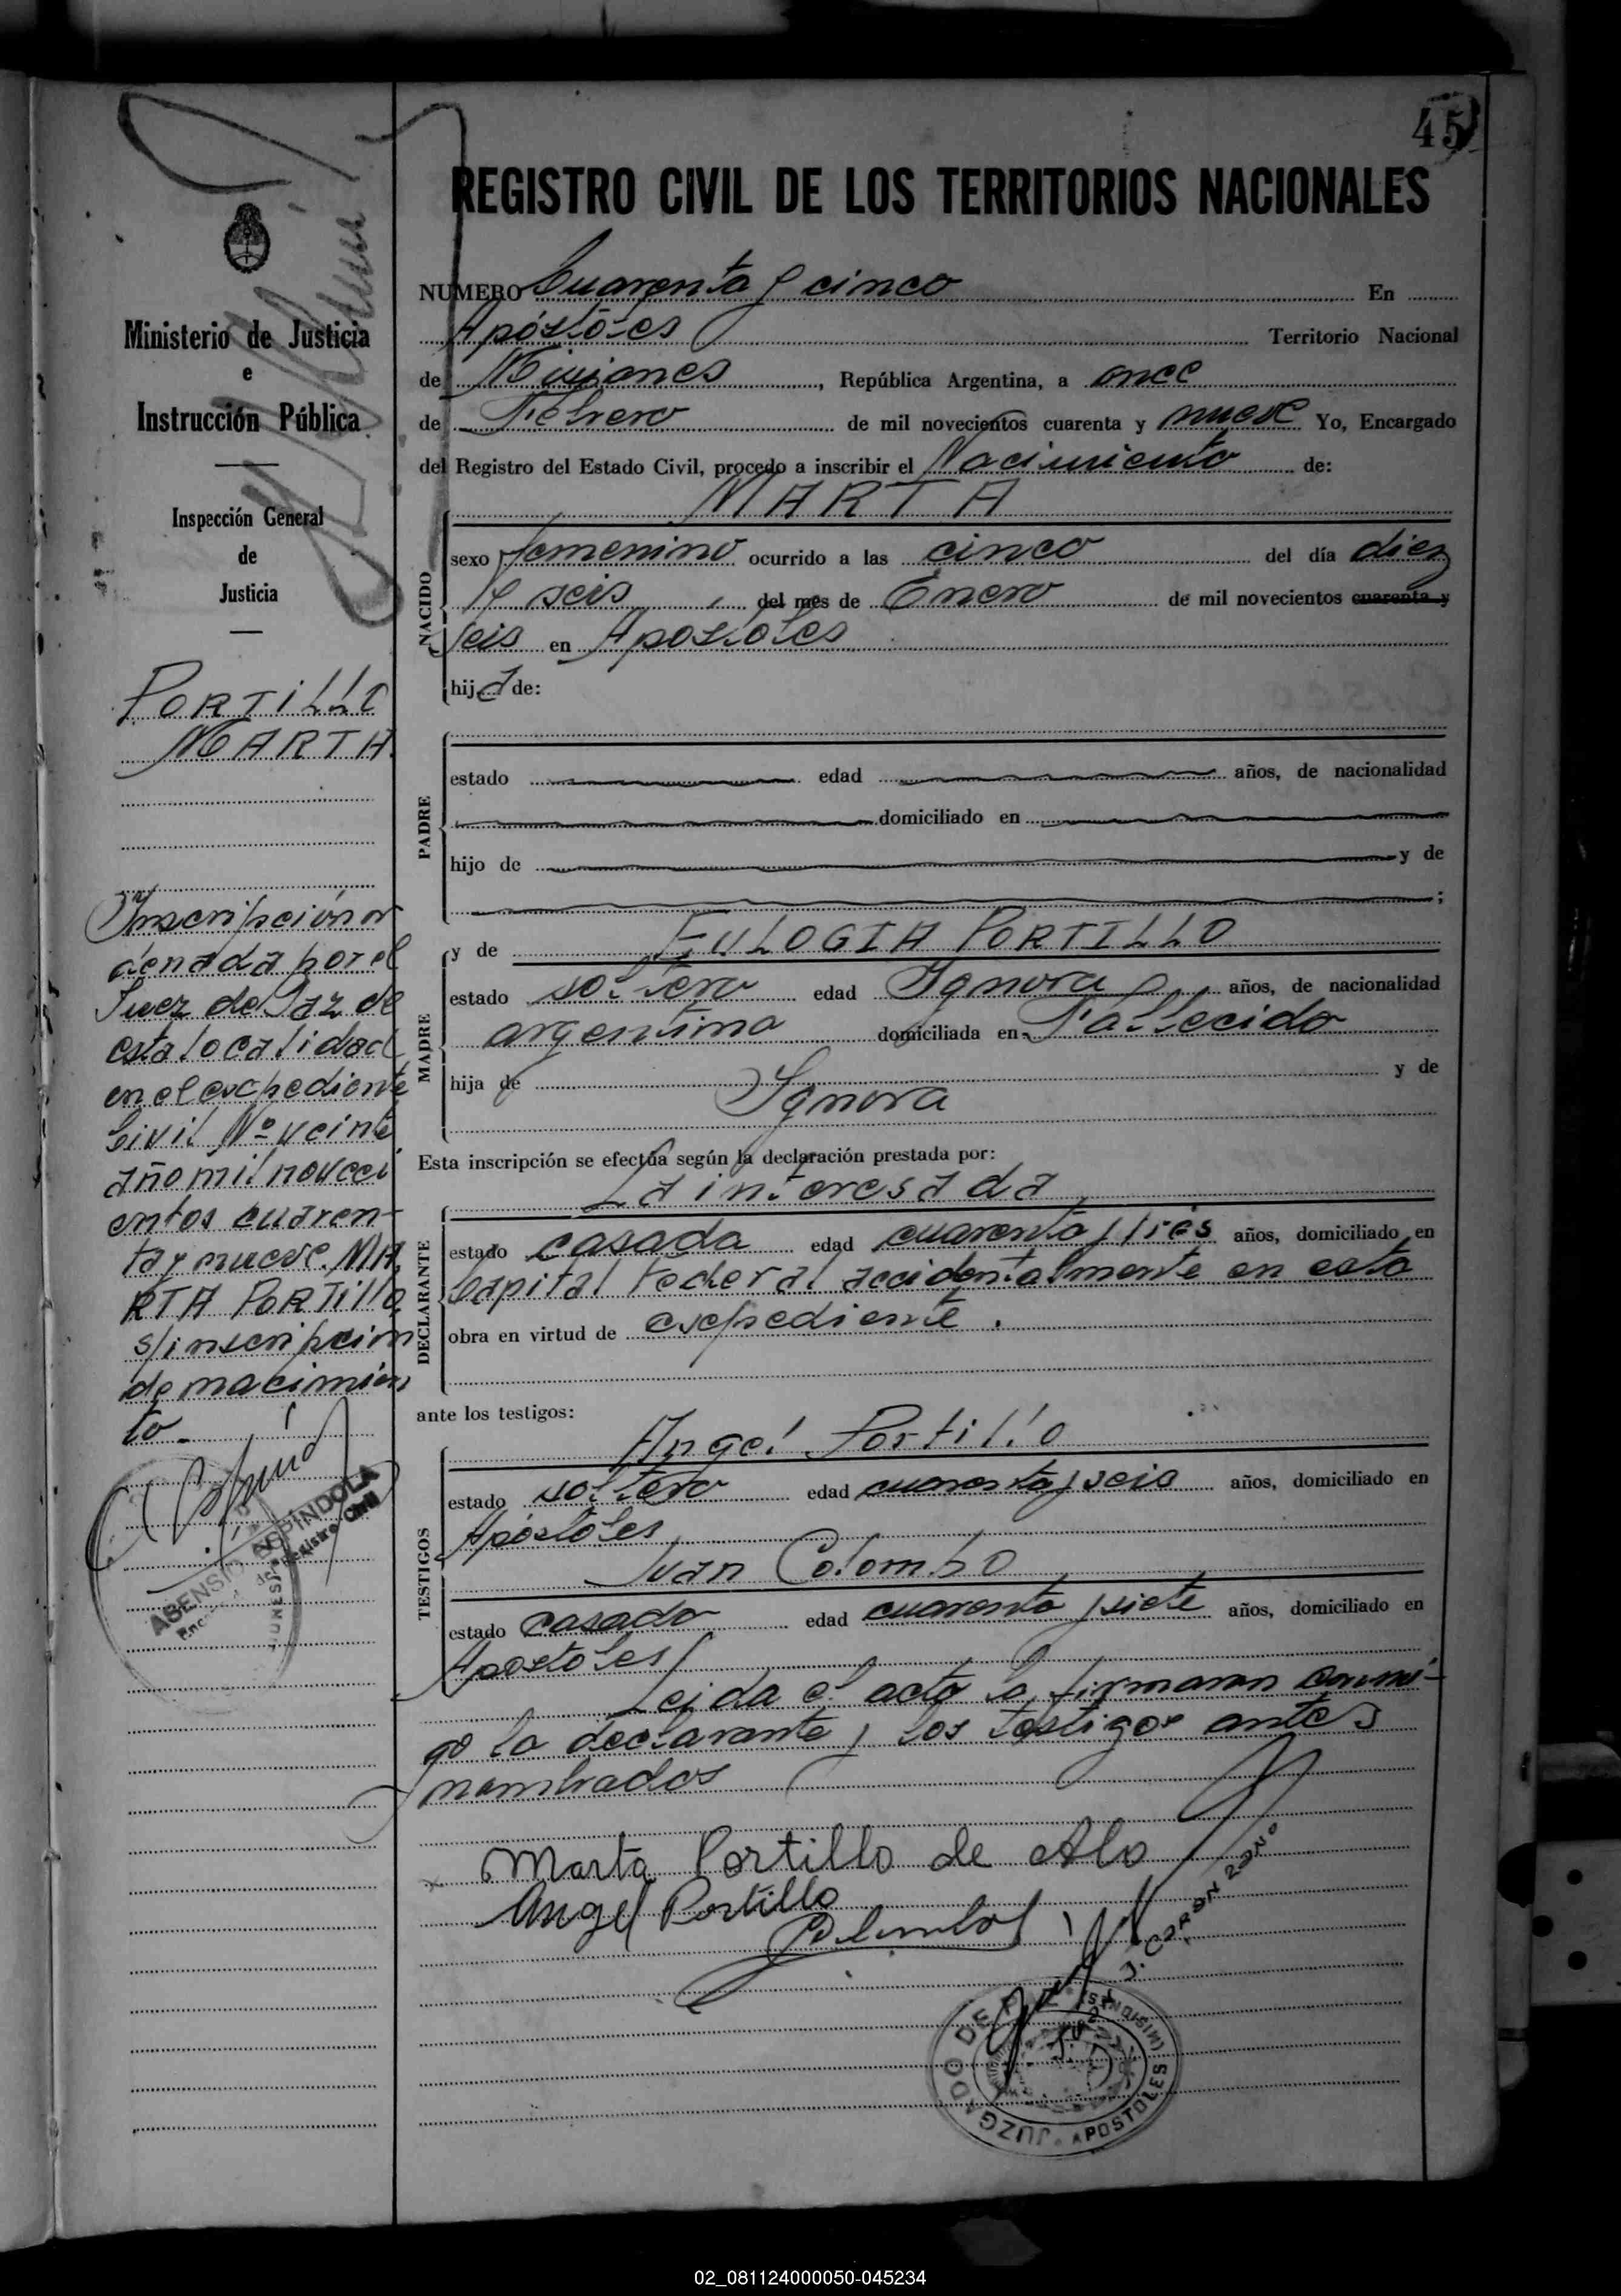 45
REGISTRO CIVIL DE LOS TERRITORIOS NACIONALES
Ministerio de Justicia
e
Instrucción Pública
Inspección General
de
Justicia
PORTILLO
MARTA
Inscripción or
denada por el
Juez de Paz de
esta localidad
en el expediente
Civil Nº veinte
año mil noveci
entos cuaren-
ta y nueve. MA
RTA PORTILLO
s/inscripcion
de nacimien
to.
ASENSIO ESPINDOLA
Registro Civil
NUMERO Cuarenta y cinco En
Apóstoles Territorio Nacional
de Misiones, República Argentina, a once
de Febrero de mil novecientos cuarenta y nueve Yo, Encargado
del Registro del Estado Civil, procedo a inscribir el Nacimiento de:
MARTA
NACIDO
sexo femenino ocurrido a las cinco del día diez
y seis del mes de Enero de mil novecientos cuarenta y
seis en Apostoles
hija de:
PADRE
estado edad años, de nacionalidad
domiciliado en
hijo de y de
;
MADRE
y de EULOGIA PORTILLO
estado soltera edad Ignora años, de nacionalidad
argentina domiciliada en Fallecida
hija de y de
Ignora
Esta inscripción se efectúa según la declaración prestada por:
La interesada
DECLARANTE
estado casada edad cuarenta y tres años, domiciliado en
Capital Federal accidentalmente en esta
obra en virtud de expediente.
ante los testigos:
TESTIGOS
Angel Portillo
estado soltero edad cuarenta y seis años, domiciliado en
Apóstoles
Juan Colombo
estado casado edad cuarenta y siete años, domiciliado en
Apostoles
Leida el acta la firmaron conmi-
go la declarante y los testigos antes
nombrados
Marta Portillo de Alo
Angel Portillo
JUZGADO DE PAZ
APOSTOLES (MISIONES)
02_081124000050-045234